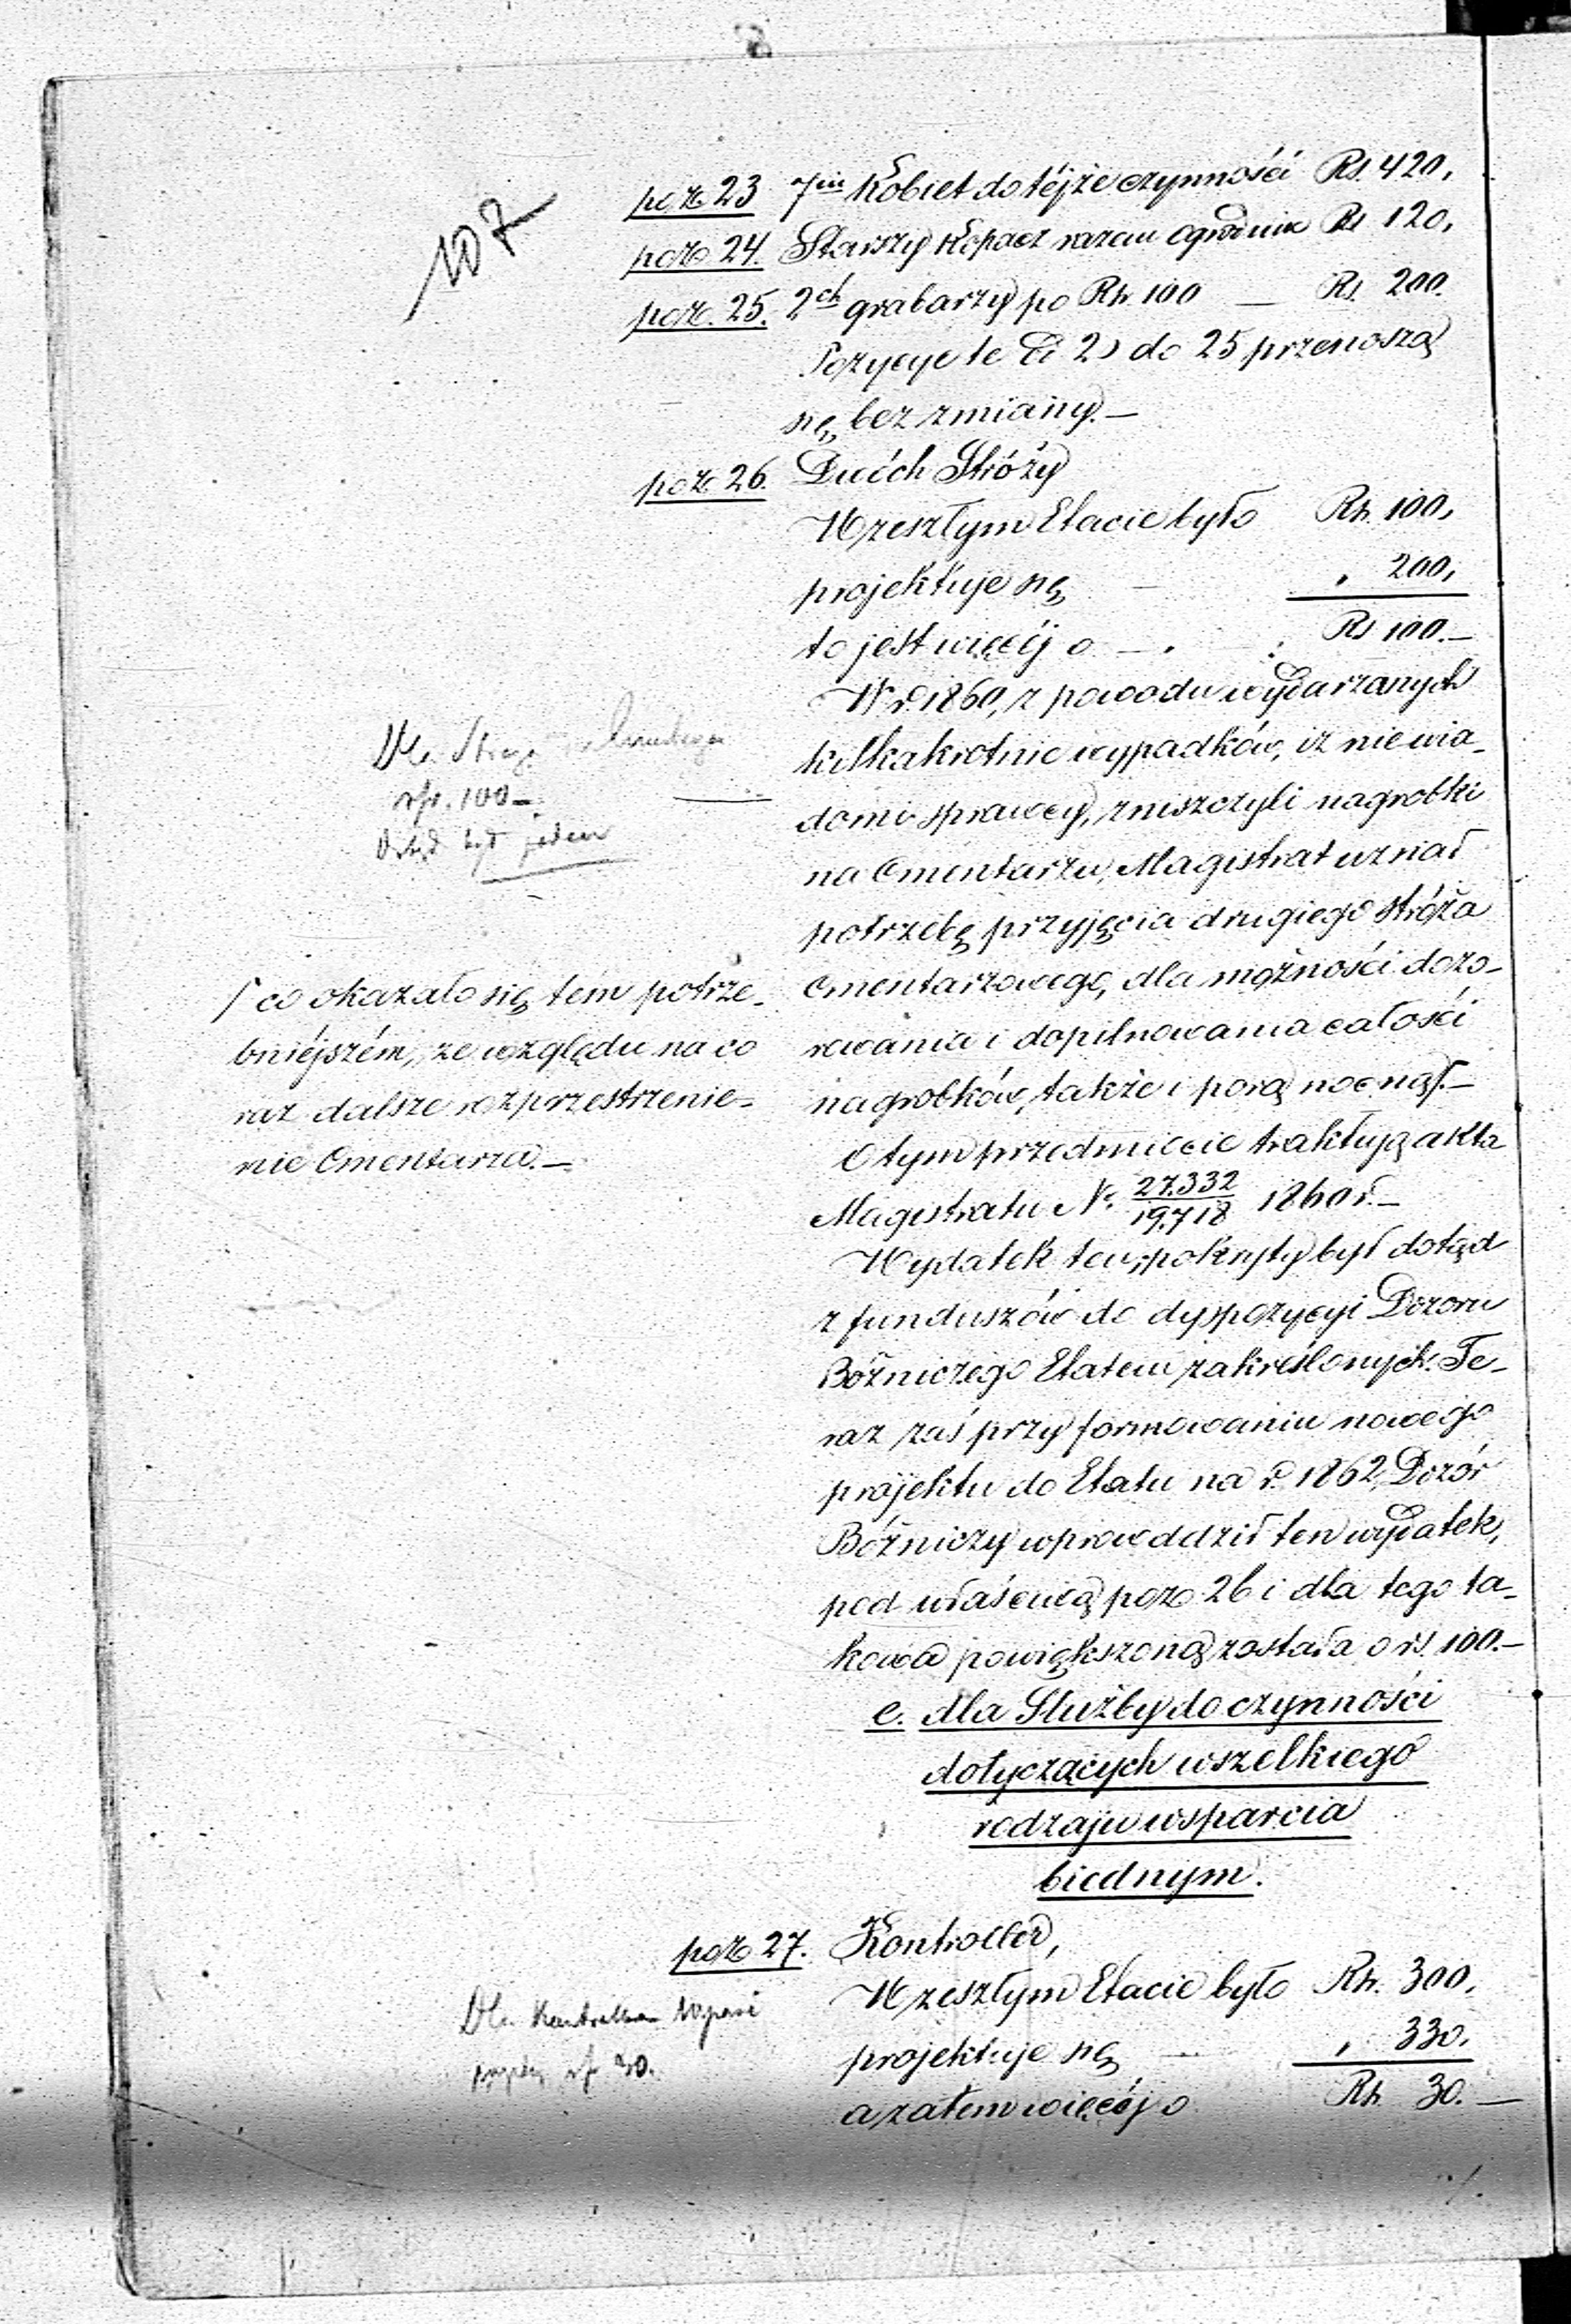 107
poz 23 7miu kobiet do téjże czynności Rs. 420,
poz 24. Starszy kopacz razem ogrodnik Rs 120,
poz. 25. 2ch grabarzy po Rs. 100 — Rs. 200.
Pozycye te od 2) do 25 przenoszą
się bez zmiany.—
poz 26. Dwóch Stróży
W zeszłym Etacie było Rs. 100,
projektuje się — „ 200,
to jest więcéj o —. Rs 100.—
W r. 1860, z powodu wydarzanych
kilkakrotnie wypadków, iż niewia-
domi sprawcy, zniszczyli nagrobki
na Cmentarzu, Magistrat uznał
potrzebę przyjęcia drugiego stróża
Cmentarzowego, dla możności dozo-
rowania i dopilnowania całości
nagrobków, także i porą nocną.—
O tym przedmiocie traktują akta
Magistratu No. 27.332/19.718 1860 r.—
Wydatek ten, pokryty był dotąd
z funduszów do dyspozycyi Dozoru
Bóżniczego Etatem zakreślonych. Te-
raz zaś przy formowaniu nowego
projektu do Etatu na r. 1862, Dozór
Bóżniczy wprowddził ten wydatek,
pod właściwą poz 26 i dla tego ta-
kowa powiększoną została o rs. 100.—
e. dla Służby do czynności
dotyczących wszelkiego
rodzaju wsparcia
biednym.
poz 27. Kontroller,
W zeszłym Etacie było Rs. 300,
projektuje się — „ 330.
a zatem więcéj o Rs. 30.—
Dla
rsr. 100 —
Dotąd był jeden
/ co okazało się tem potrze-
bniéjszém, ze względu na co
raz dalsze rozprzestrzenie-
nie Cmentarza.—
Dla Kontrollera
rsr 30.